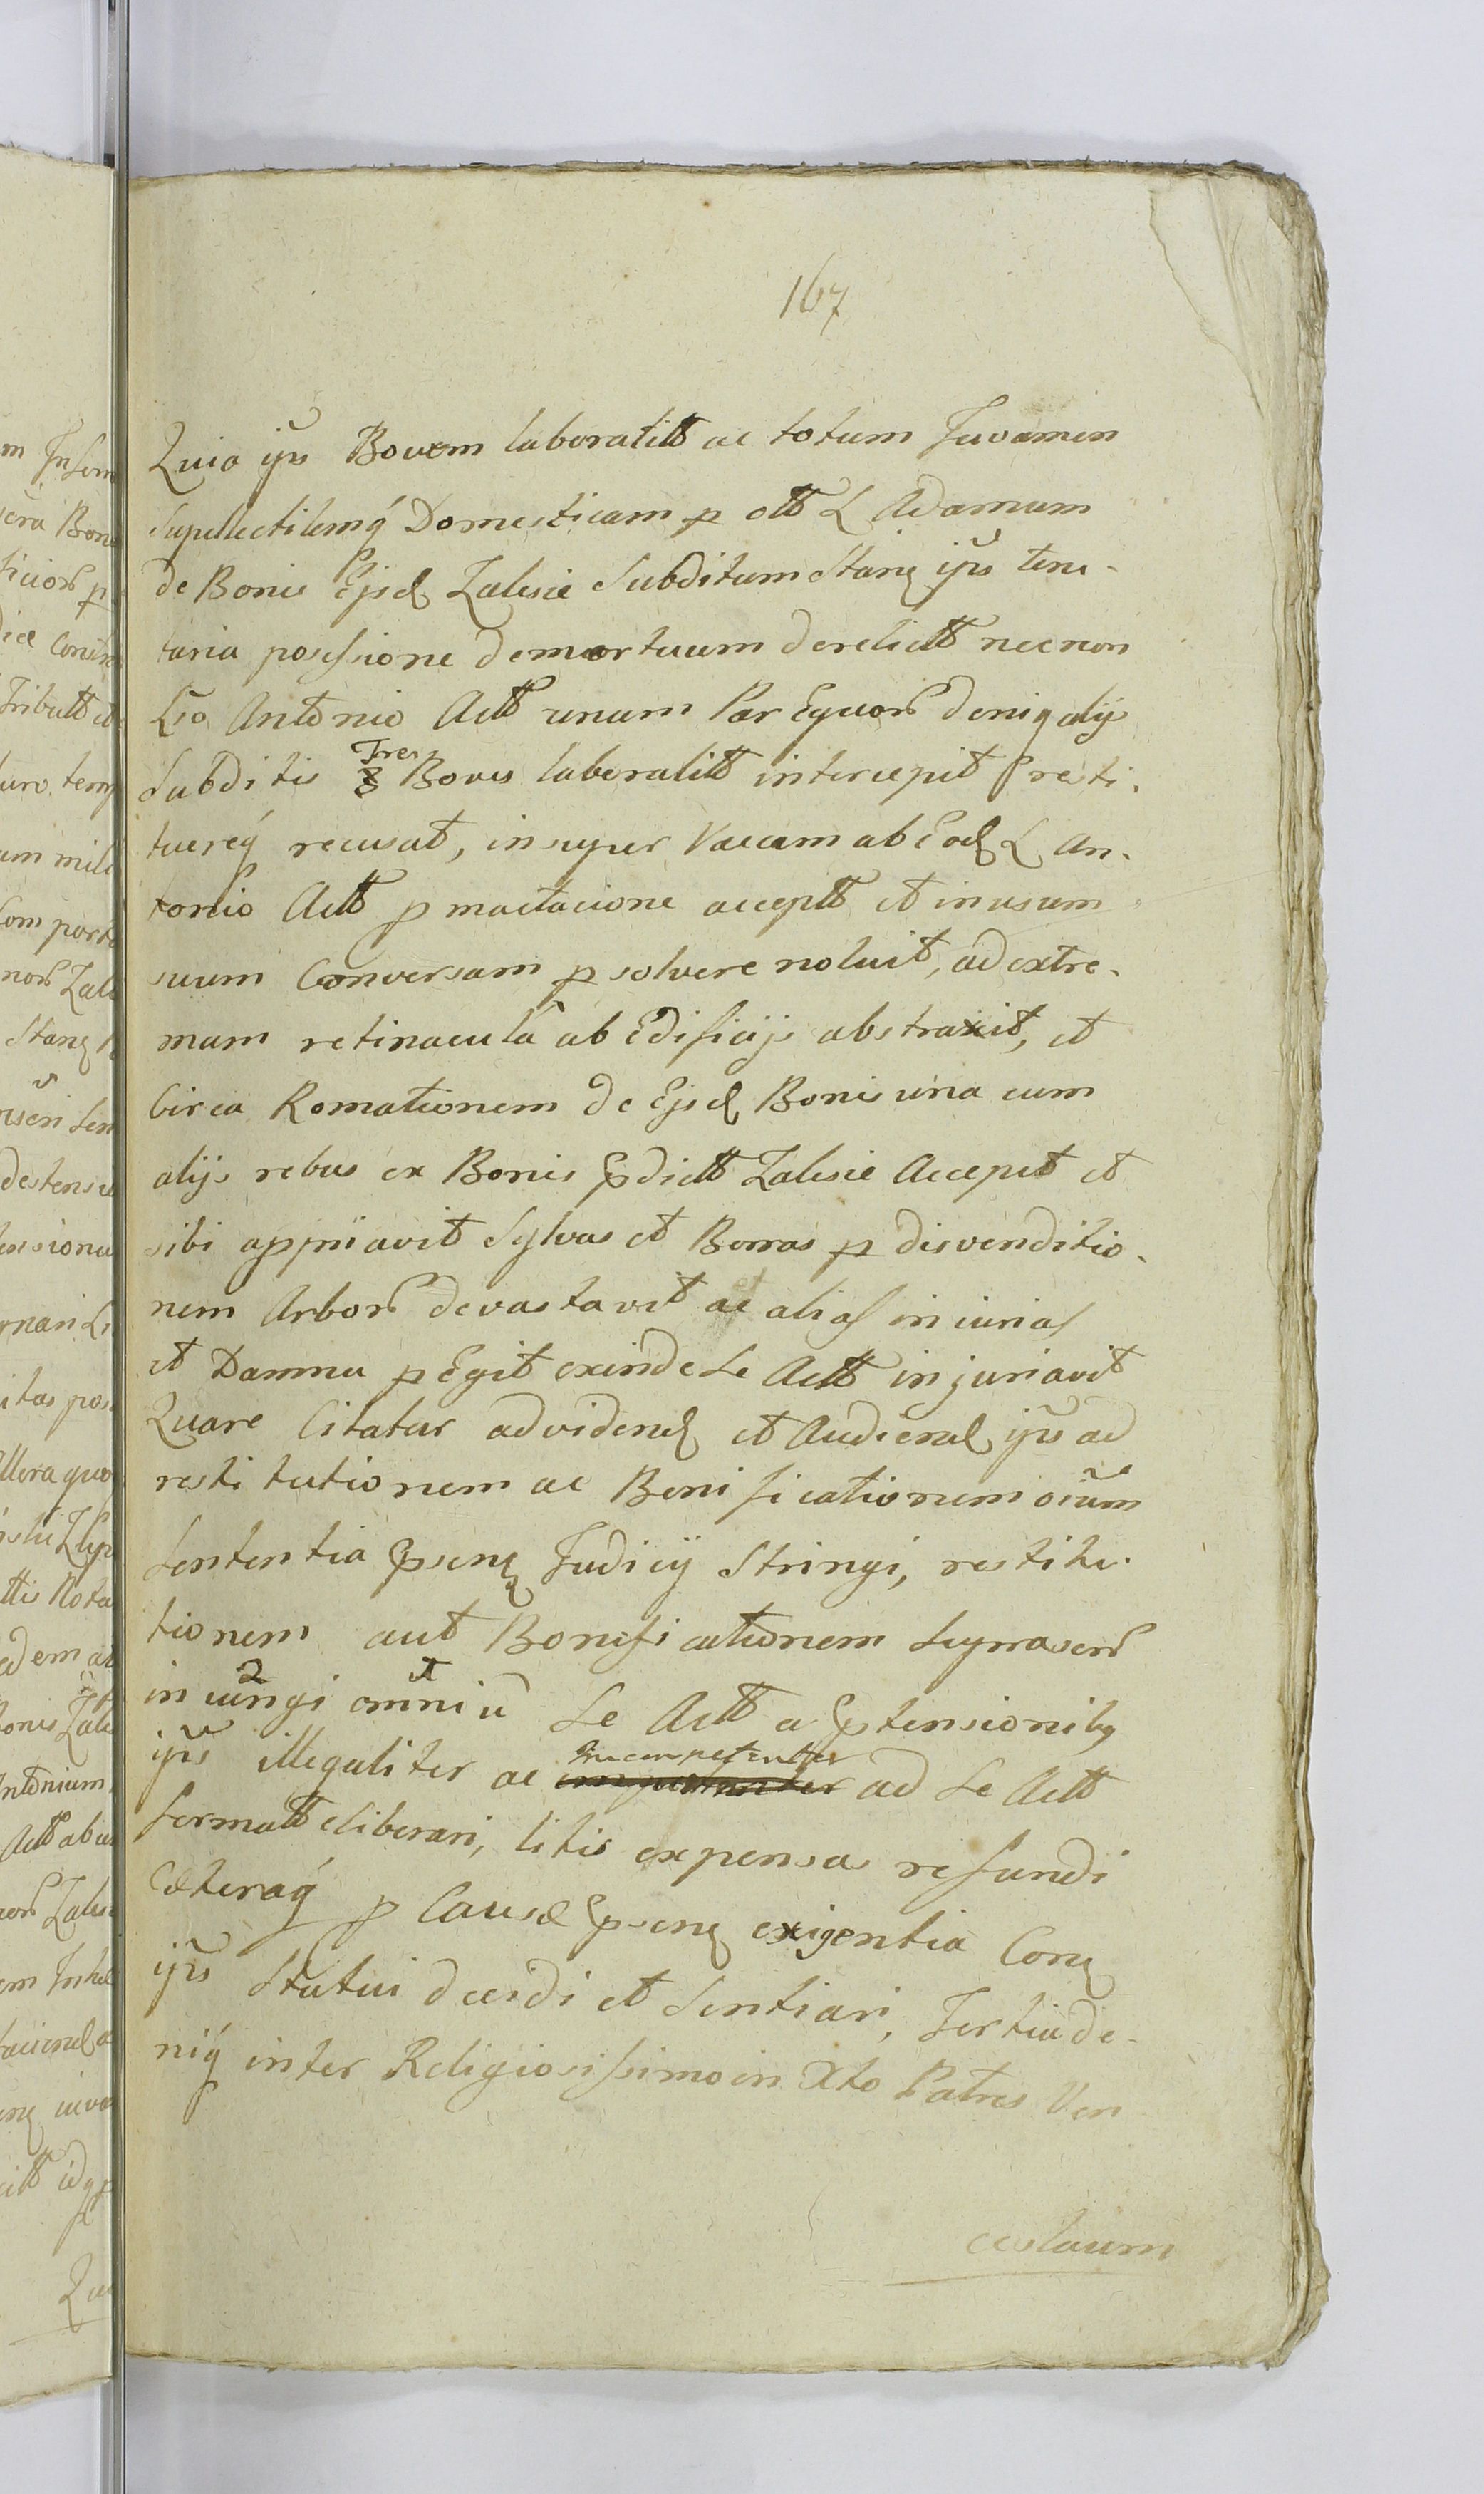 167
Quia ips Bovem laboralitt ac totum Juvamen
Supellectilemq́ Domesticam p ott L Adamum
de Bonis Ejsd Zalesie Subditum Stanę ips tenu-
taria possione demortuum derelictt necnon
Lso Antonio Actt unum Par Equorũ deniq alijs
Subditis Tres Boves laboralitt intercepit resti-
tuereq́ recusat, insuper Vaccam ab Eod L An-
tonio Actt p mactacione acceptt et in usum
suum Conversam p solvere noluit, ad extre-
mum retinacula ab Edificijs abstraxit, et
Circa Romationem de Ejsd Bonis una cum
alijs rebus ex Bonis pdictt Zalesie Accepit et
sibi appriavit Sylvas et Borras p disvenditio-
nem Arborũ devastavit ac et alias iniurias
et Damna p Egit exinde Le Actt injuriavit
Quare Citatur ad videnď et Audienď ips ad
restitutionem ac Bonificationem oium
Sententia psenę Judicij Stringi, restitu-
tionem aut Bonificationem supraserũ
iniungi omniũ Le Actt a ptensionibq
ips illegaliter ac Incompetenter ad Le Actt
formatt eliberari, litis expensas refundi
Cæteraq́ p Causæ psenę exigentia Conę
ips Statui decidi et Sentiari, Tertia de-
niq́ inter Religiosissimo in Xto Patres Ven
ceslaum